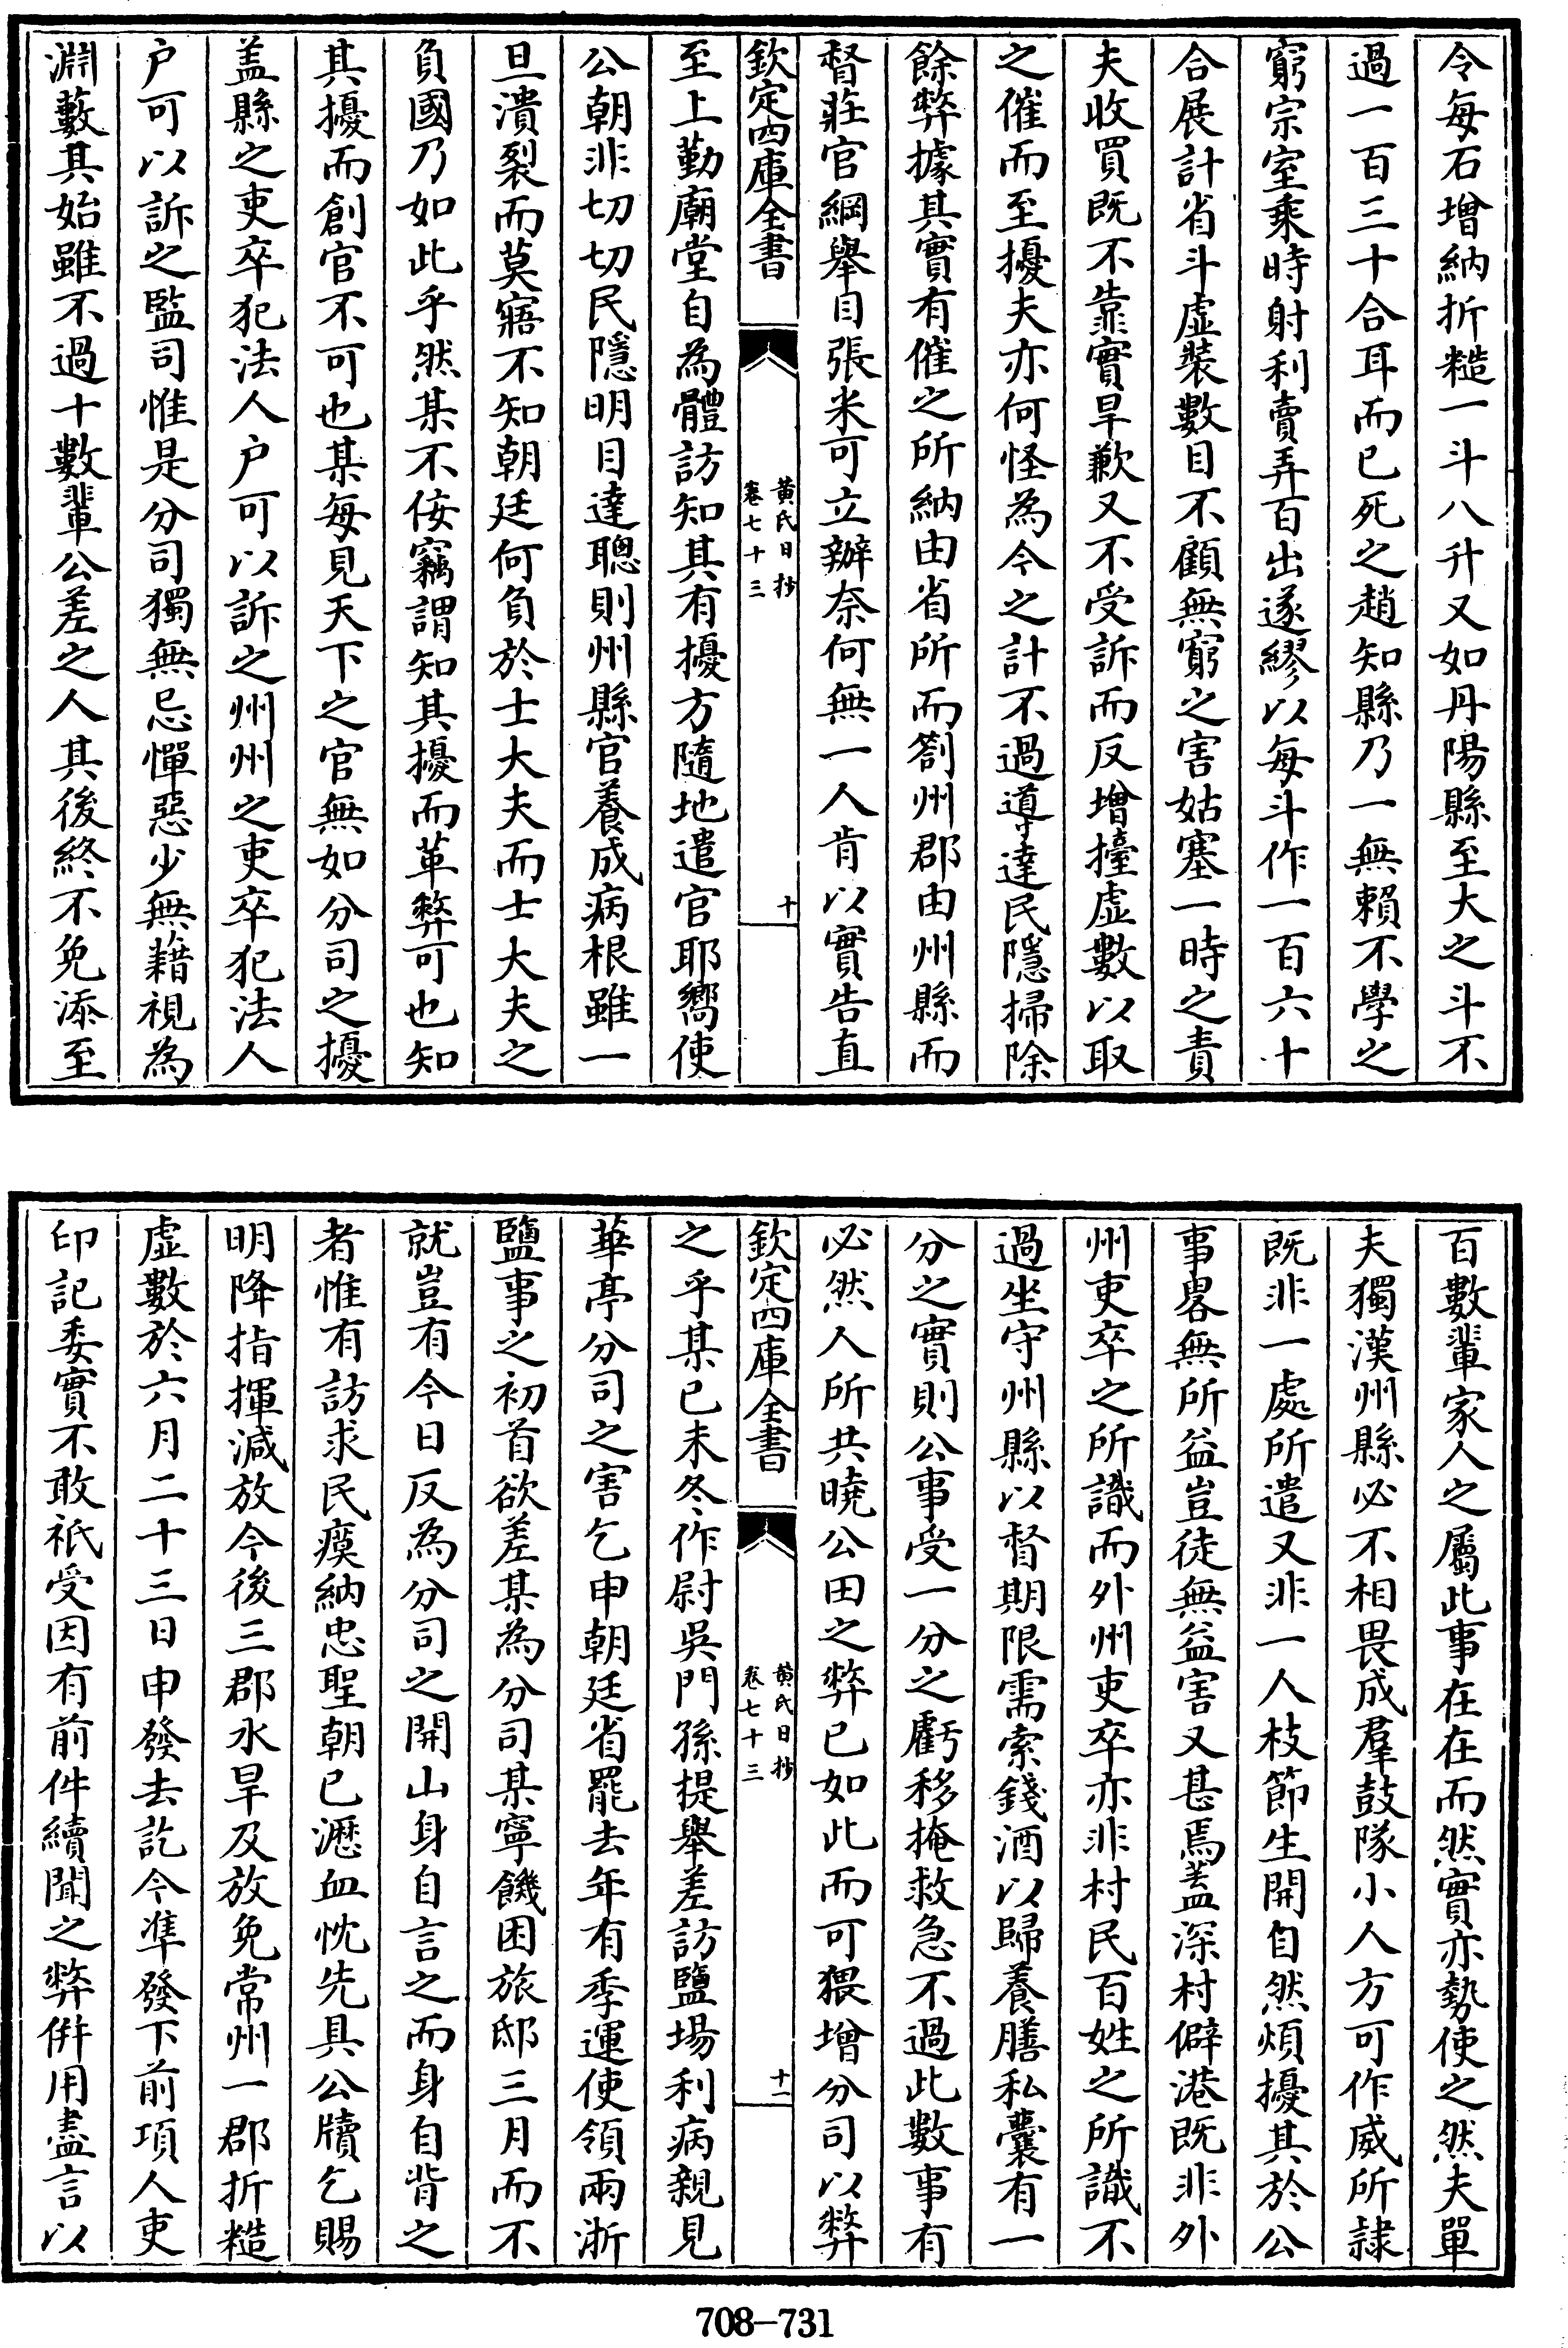 令每石增納折糙一斗八升又如丹陽縣至大之斗不
過一百三十合耳而已死之趙知縣乃一無賴不學之
窮宗室乘時射利賣弄百出遂繆以每斗作一百六十
合展計省斗虛裝數目不顧無窮之害姑塞一時之責
夫收買既不靠實旱歉又不受訴而反增擡虛數以取
之催而至擾夫亦何怪為今之計不過導達民隱掃除
餘弊據其實有催之所納由省所而劄州郡由州縣而
督莊官綱舉目張米可立辦奈何無一人肯以實告直
欽定四庫全書
黄氏日抄
卷七十三
十
至上勤廟堂自為體訪知其有擾方隨地遣官耶嚮使
公朝非切切民隱明目達聰則州縣官養成病根雖一
旦潰裂而莫寤不知朝廷何負於士大夫而士大夫之
負國乃如此乎然某不佞竊謂知其擾而革弊可也知
其擾而創官不可也某每見天下之官無如分司之擾
盖縣之吏卒犯法人户可以訴之州州之吏卒犯法人
户可以訴之監司惟是分司獨無忌憚惡少無藉視為
淵藪其始雖不過十數輩公差之人其後終不免添至
百數輩家人之屬此事在在而然實亦勢使之然夫單
夫獨漢州縣必不相畏成羣鼓隊小人方可作威所隷
既非一處所遣又非一人枝節生開自然煩擾其於公
事畧無所益豈徒無益害又甚焉盖深村僻港既非外
州吏卒之所識而外州吏卒亦非村民百姓之所識不
過坐守州縣以督期限需索錢酒以歸養膳私囊有一
分之實則公事受一分之虧移掩救急不過此數事有
必然人所共曉公田之弊已如此而可猥增分司以弊
欽定四庫全書
黄氏日抄
卷七十三
十一
之乎某已未冬作尉吳門孫提舉差訪鹽場利病親見
華亭分司之害乞申朝廷省罷去年有季運使領兩浙
鹽事之初首欲差某為分司某寧饑困旅邸三月而不
就豈有今日反為分司之開山身自言之而身自背之
者惟有訪求民瘼納忠聖朝已瀝血忱先具公牘乞賜
明降指揮減放今後三郡水旱及放免常州一郡折糙
虛數於六月二十三日申發去訖今準發下前項人吏
印記委實不敢祇受因有前件續聞之弊併用盡言以
708-731